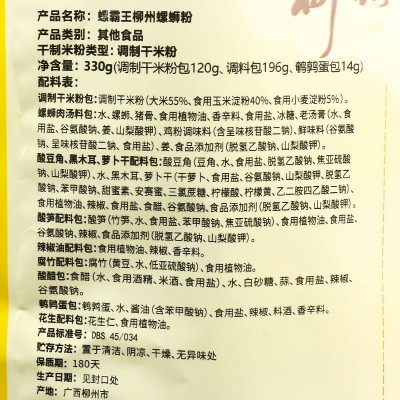 产品名称：螺霸王柳州螺蛳粉
产品类别：其他食品
干制米粉类型：调制干米粉
净含量：330g(调制干米粉包120g、调料包196g、鹌鹑蛋包14g)
配料表：
调制干米粉包：调制干米粉（大米55%、食用玉米淀粉40%、食用小麦淀粉5%）。
螺蛳肉汤料包：水、螺蛳、猪骨、食用植物油、香辛料、食用盐、冰糖、老汤膏（水、食用
盐、谷氨酸钠、姜、山梨酸钾）、鸡粉调味料（含呈味核苷酸二钠）、鲜味料（谷氨酸
钠、呈味核苷酸二钠、食用盐）、姜、食品添加剂（脱氢乙酸钠、山梨酸钾）。
酸豆角、黑木耳、萝卜干配料包：酸豆角（豆角、水、食用盐、脱氢乙酸钠、焦亚硫酸钠、
山梨酸钾）、水、黑木耳、萝卜干（干萝卜、食用盐、谷氨酸钠、山梨酸钾、脱氢乙酸
钠、苯甲酸钠、甜蜜素、安赛蜜、三氯蔗糖、柠檬酸、柠檬黄、乙二胺四乙酸二钠）、
食用植物油、辣椒、食盐、食醋、谷氨酸钠、食品添加剂（脱氢乙酸钠、山梨酸钾）。
酸笋配料包：酸笋（竹笋、水、食用盐、苯甲酸钠、焦亚硫酸钠）、食用植物油、食用盐、
谷氨酸钠、辣椒、食品添加剂（脱氢乙酸钠、山梨酸钾）。
辣椒油配料包：食用植物油、辣椒、香辛料。
腐竹配料包：腐竹（黄豆、水、低亚硫酸钠）、食用植物油。
酸醋包：食醋（水、食用酒精、米酒、食用盐）、水、白砂糖、蒜、食用盐、辣椒、
谷氨酸钠。
鹌鹑蛋包：鹌鹑蛋、水、酱油（含苯甲酸钠）、食用盐、辣椒、料酒、香辛料。
花生配料包：花生仁、食用植物油。
产品标准号：DBS 45/034
贮存方法：置于清洁、阴凉、干燥、无异味处
保质期：180天
生产日期：见封口处
产地：广西柳州市